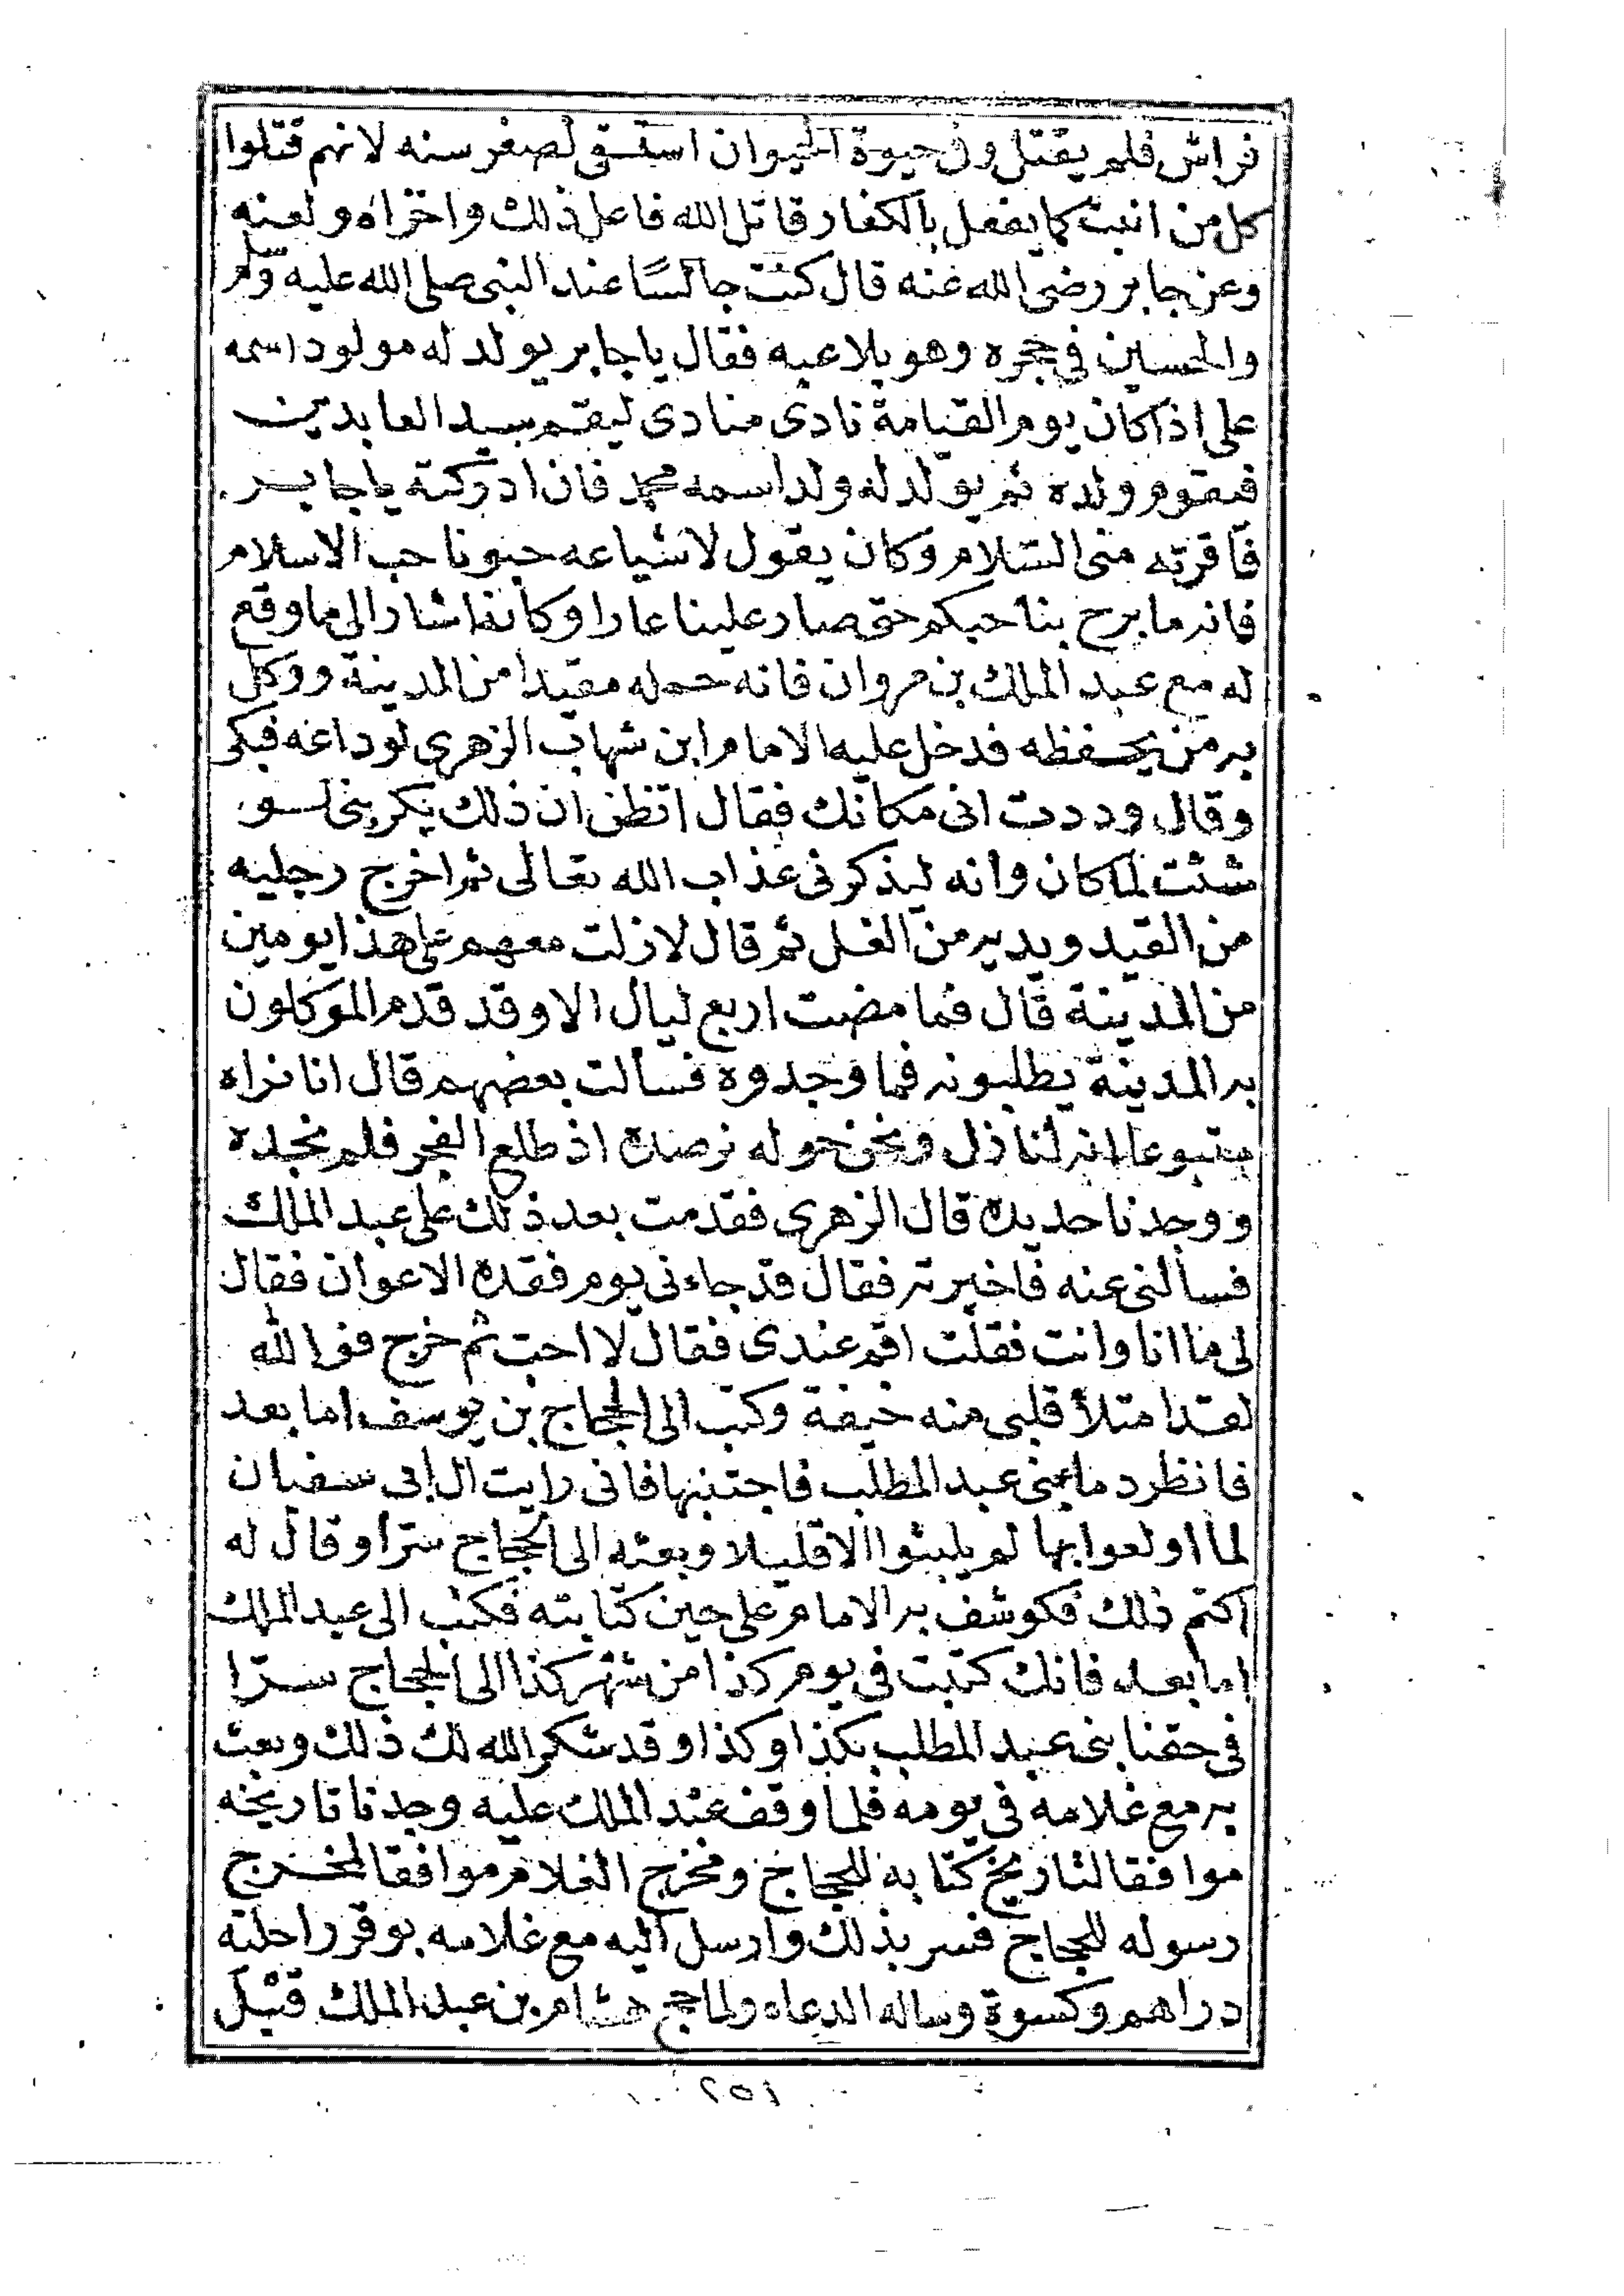 فراش فلم يقتل وفي حيوة الحيوان استبقى لصغر سنه لانهم قتلوا
كل من انبت كما يفعل بالكفار قاتل الله فاعل ذلك واخزاه ولعنه
وعن جابر رضى الله عنه قال كنت جالسًا عند النبى صلى الله عليه وسلم
والحسين في حجره وهو يلاعبه فقال يا جابر يولد له مولود اسمه
على اذا كان يوم القيامة نادى منادى ليقم سيد العابدين
فيقوم ولده ثم يولد له ولد اسمه محمد فان ادركته يا جابر
فاقرئه منى السّلام وكان يقول لاشياعه حبونا حب الاسلام
فانه ما برح بنا حبكم حتى صار علينا عارا وكانه اشار الى ما وقع
له مع عبد الملك بن مروان فانه حمله مقيدا من المدينة ووكل
به من يحفظه فدخل عليه الامام ابن شهاب الزهرى لوداعه فبكى
وقال وددت انى مكانك فقال اتظن ان ذلك يكربنى لو
شئت لما كان وانه ليذكرنى عذاب الله تعالى ثم اخرج رجليه
من القيد ويديه من الغل ثم قال لازلت معهم على هذا يومين
من المدينة قال فما مضت اربع ليال الا وقد قدم الموكلون
به المدينة يطلبونه فما وجدوه فسالت بعضهم قال انا نراه
متبوعا انه لنازل ونحن حوله نرصده اذ طلع الفجر فلم نجده
ووجدنا حديده قال الزهرى فقدمت بعد ذلك على عبد الملك
فسالنى عنه فاخبرته فقال قد جاءنى يوم فقده الاعوان فقال
لى ما انا وانت فقلت اقم عندى فقال لا احب ثم خرج فوالله
لقد امتلأ قلبى منه خيفة وكتب الى الحجاج بن يوسف اما بعد
فانظر دما بنى عبد المطلب فاجتنبها فانى رايت ال ابى سفيان
لما اولعوا بها لم يلبثوا الا قليلا وبعثه الى الحجاج سرّا وقال له
اكتم ذلك فكوشف به الامام على حين كتابته فكتب الى عبد الملك
اما بعد فانك كتبت في يوم كذا من شهر كذا الى الحجاج سرّا
في حقنا بنى عبد المطلب بكذا وكذا وقد شكر الله لك ذلك وبعث
به مع غلامه في يومه فلما وقف عند الملك عليه وجدنا تاريخه
موافقا لتاريخ كتابه للحجاج ومخرج الغلام موافقا لمخرج
رسوله للحجاج فسر بذلك وارسل اليه مع غلامه بوقر راحلته
دراهم وكسوة وساله الدعاء ولما حج هشام بن عبد الملك قبل